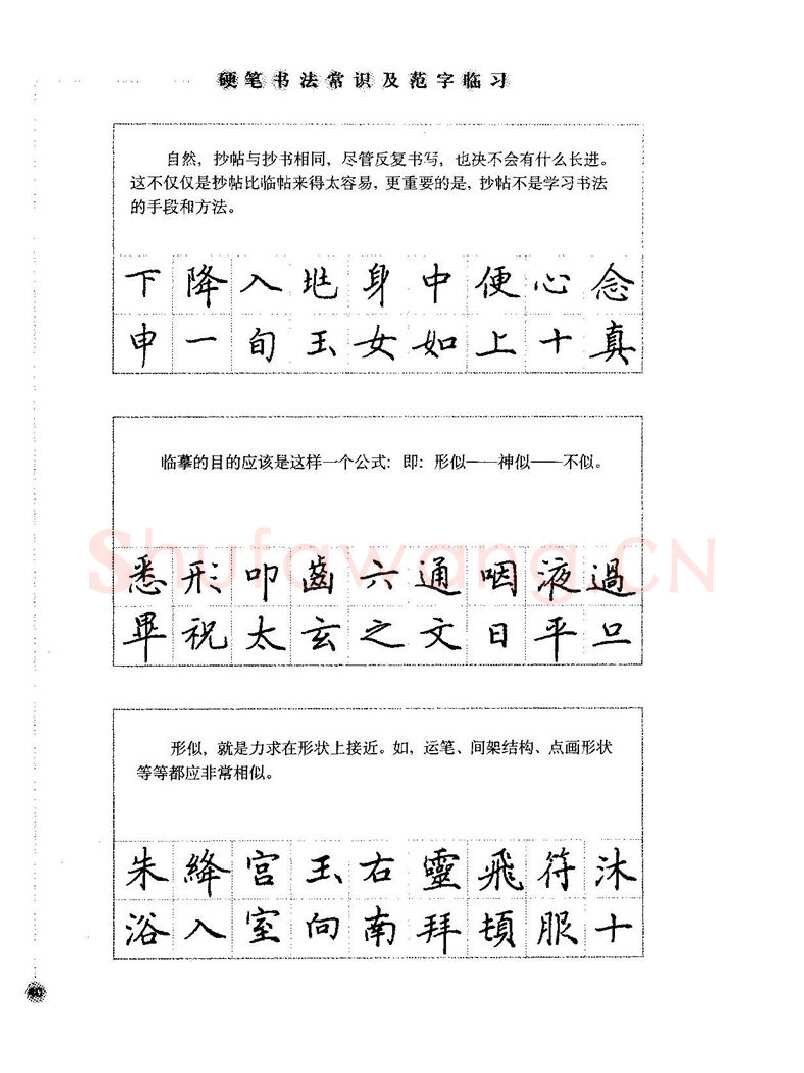 硬笔书法常识及范字临习
自然，抄帖与抄书相同，尽管反复书写，也决不会有什么长进。
这不仅仅是抄帖比临帖来得太容易，更重要的是，抄帖不是学习书法
的手段和方法。
下降入地身中便心念
申一旬玉女如上十真
临摹的目的应该是这样一个公式：即：形似——神似——不似。
Shufawang.CN
悉形叩齒六通咽液過
畢祝太玄之文日平旦
形似，就是力求在形状上接近。如，运笔、间架结构、点画形状
等等都应非常相似。
朱絳宫玉右靈飛符沐
浴入室向南拜頓服十